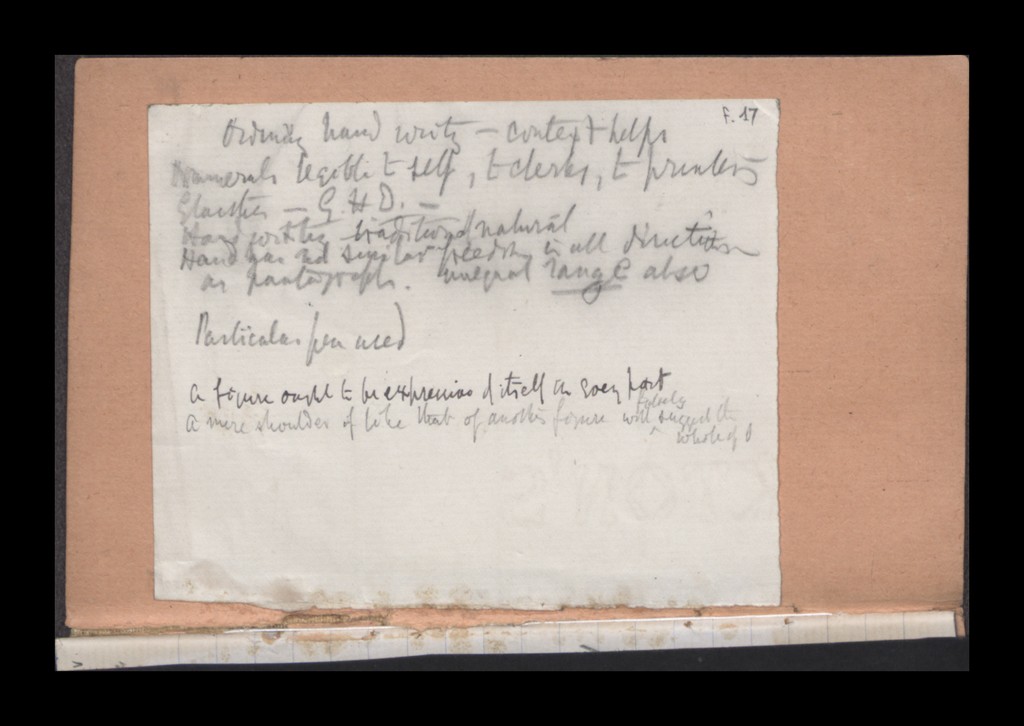 f. 17
Ordinary hand writg — context helps
Nummerals legible to self, to clerks, to printers
— G. H D. —
Hand writing traditional natural
Hand has not similar freedom in all direction
as pantograph. unequal range also
Particular pen used
A figure ought to be expressive of itself in every part
falsely
A mere shoulder if like that of another figure will ^ suggest the
whole of it